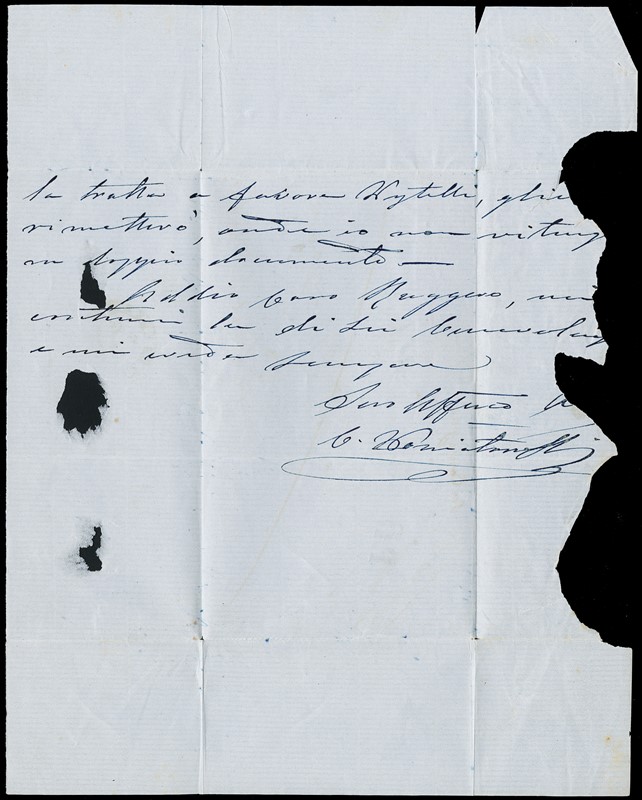 la tratta a favore Vytelli, glie
rimetterò, onde io non ritenga
un doppio documento —
Addio Caro Ruggero, mi
continui la di Lei benevolenz
e mi creda sempre
Suo Affmo
C. Poniatowski